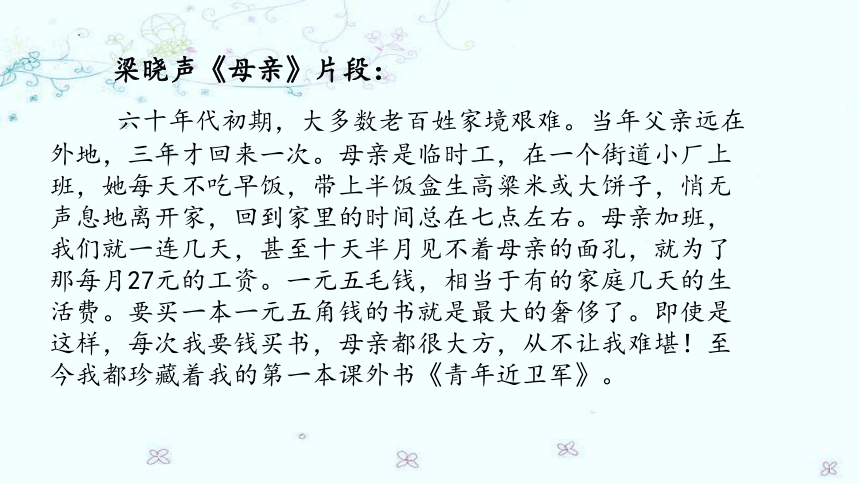 梁晓声《母亲》片段：
六十年代初期，大多数老百姓家境艰难。当年父亲远在
外地，三年才回来一次。母亲是临时工，在一个街道小厂上
班，她每天不吃早饭，带上半饭盒生高粱米或大饼子，悄无
声息地离开家，回到家里的时间总在七点左右。母亲加班，
我们就一连几天，甚至十天半月见不着母亲的面孔，就为了
那每月27元的工资。一元五毛钱，相当于有的家庭几天的生
活费。要买一本一元五角钱的书就是最大的奢侈了。即使是
这样，每次我要钱买书，母亲都很大方，从不让我难堪！至
今我都珍藏着我的第一本课外书《青年近卫军》。